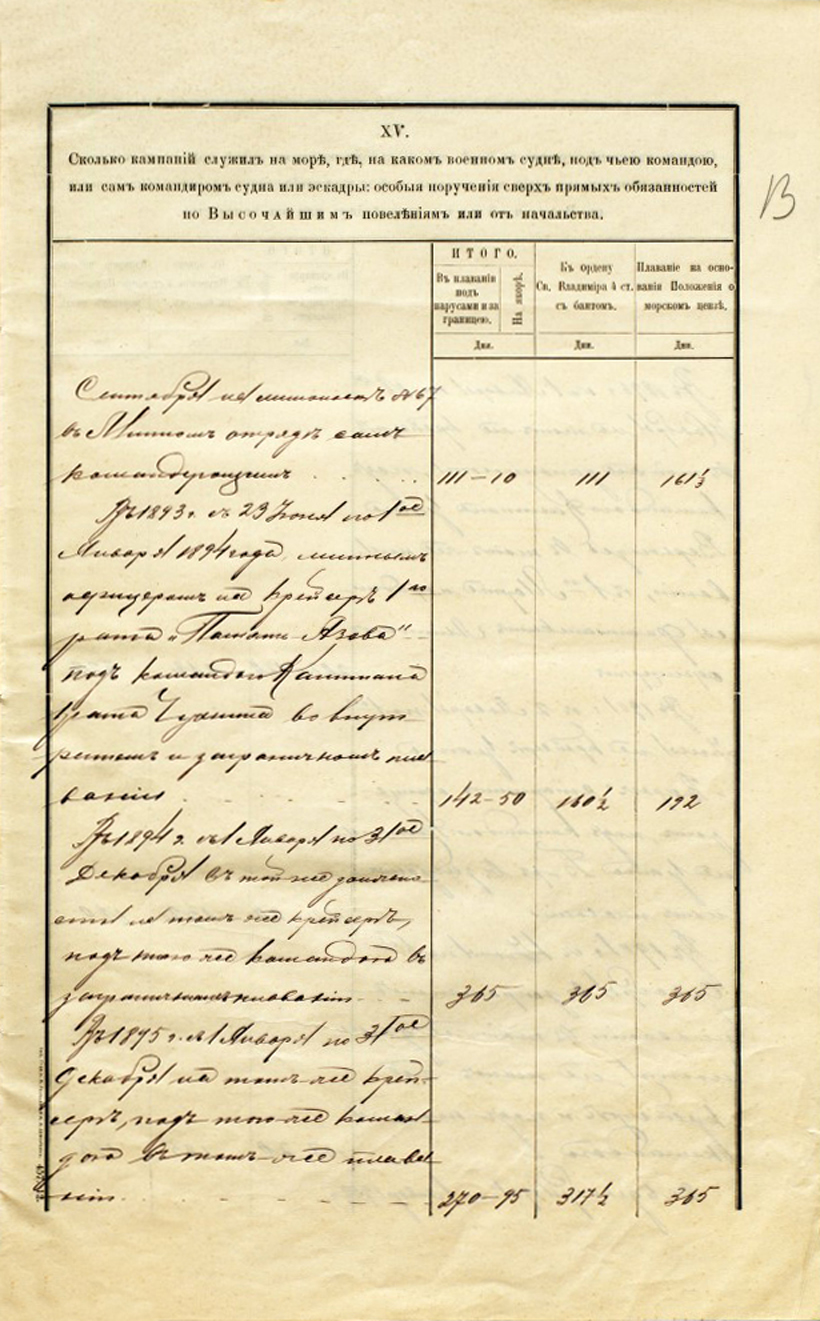 XV.
Сколько кампаній служилъ на морѣ, гдѣ, на какомъ военномъ суднѣ, подъ чьею командою,
или самъ командиромъ судна или эскадры: особыя порученія сверхъ прямыхъ обязанностей
по Высочайшимъ повелѣніямъ или отъ начальства.
В
ИТОГО.
Въ плаваніи подъ парусами и за границею.
На якорѣ.
Къ ордену Св. Владиміра 4 ст. съ бантомъ.
Плаваніе на основаніи Положенія о морскомъ цензѣ.
Дня.
Дни.
Дни.
Сентября на миноносцѣ №67
въ Минномъ отрядѣ самъ
командующимъ 111–10 111 161⅓
Въ 1893 г. съ 23 Іюня по 1ое
Января 1894 года, миннымъ
офицеромъ на крейсерѣ 1го
ранга „Память Азова"
подъ командою Капитана
1 ранга Чухнина во внут
реннемъ и заграничномъ пла
ваніи 142–50 160½ 192
Въ 1894 г. съ 1 Января по 31ое
Декабря въ той же должно
сти на томъ же крейсерѣ,
подъ тою же командою въ
заграничномъ плаваніи 365 365 365
Въ 1895 г. съ 1 Января по 31ое
Декабря на томъ-же крей-
серѣ, подъ тою-же коман-
дою въ томъ-же плава
ніи 270–95 317½ 365